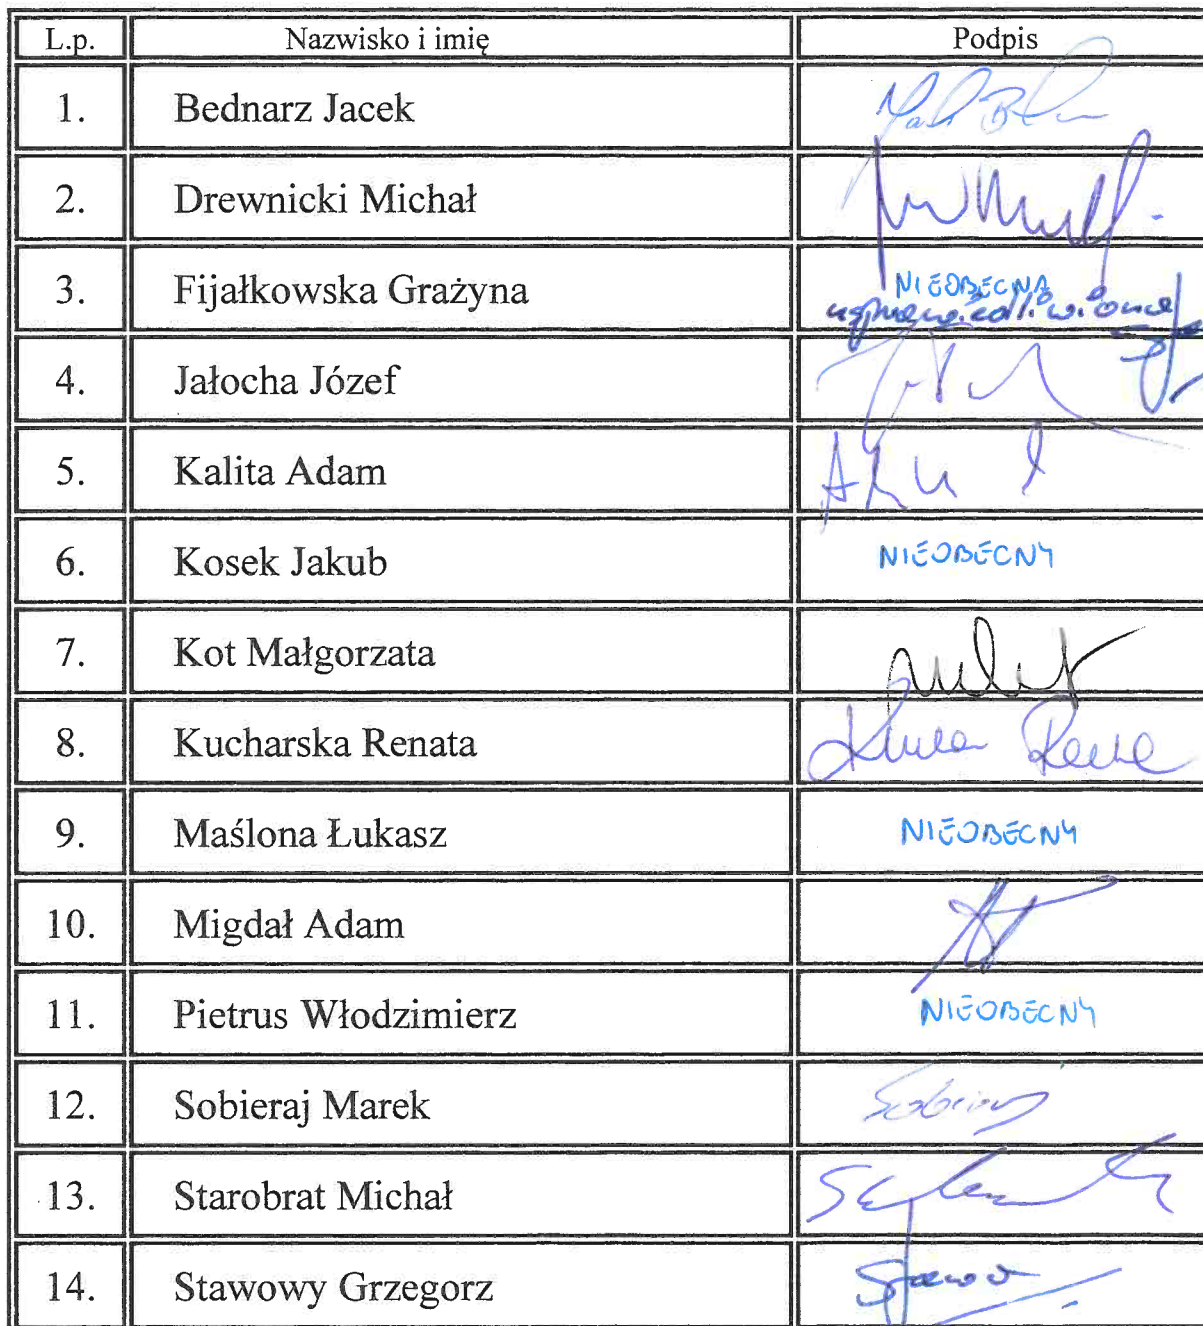 L.p. Nazwisko i imię Podpis
1. Bednarz Jacek
2. Drewnicki Michał
3. Fijałkowska Grażyna NIEOBECNA
usprawiedliwiona
4. Jałocha Józef
5. Kalita Adam
6. Kosek Jakub NIEOBECNY
7. Kot Małgorzata
8. Kucharska Renata
9. Maślona Łukasz NIEOBECNY
10. Migdał Adam
11. Pietrus Włodzimierz NIEOBECNY
12. Sobieraj Marek
13. Starobrat Michał
14. Stawowy Grzegorz